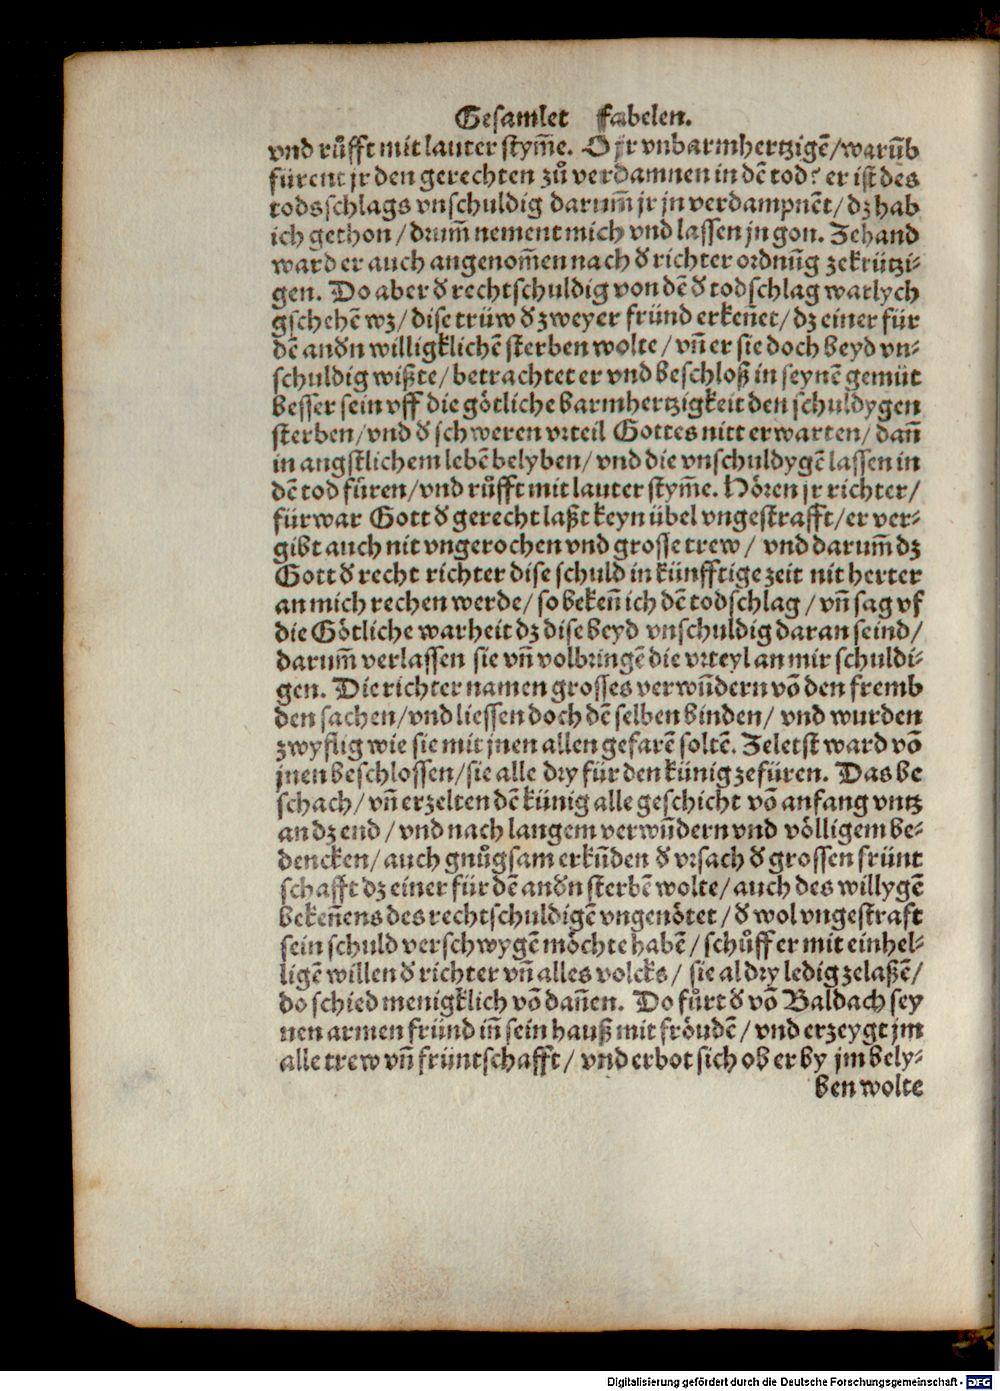 Gesamlet fabelen.
vnd růfft mit lauter stym̃e. O jr vnbarmhertzigẽ/warũb
fürent jr den gerechten zů verdamnen in dẽ tod? er ist des
todsschlags vnschuldig darum̃ jr jn verdampnẽt/dz hab
ich gethon/drum̃ nement mich vnd lassen jn gon. Zehand
ward er auch angenom̃en nach d̕ richter ordnũg zekrützi-
gen. Do aber d̕ rechtschuldig von dẽ d̕ todschlag warlych
gschehẽ wz/dise trüw d̕ zweyer fründ erkeñet/dz einer für
dẽ and̕n willigklichẽ sterben wolte/vñ er sie doch beyd vn-
schuldig wißte/betrachtet er vnd beschloß in seynẽ gemüt
besser sein vff die götliche barmhertzigkeit den schuldygen
sterben/vnd d̕ schweren vrteil Gottes nitt erwarten/dañ
in angstlichem lebẽ belyben/vnd die vnschuldygẽ lassen in
dẽ tod füren/vnd růfft mit lauter stym̃e. Hören jr richter/
fürwar Gott d̕ gerecht laßt keyn übel vngestrafft/er ver-
gibt auch nit vngerochen vnd grosse trew/ vnd darum̃ dz
Gott d̕ recht richter dise schuld in künfftige zeit nit herter
an mich rechen werde/so bekeñ ich dẽ todschlag/vñ sag vf
die Götliche warheit dz dise beyd vnschuldig daran seind/
darum̃ verlassen sie vñ volbringẽ die vrteyl an mir schuldi-
gen. Die richter namen grosses verwũdern võ den fremb
den sachen/vnd liessen doch dẽ selben binden/ vnd wurden
zwyflig wie sie mit jnen allen gefarẽ soltẽ. Zeletst ward võ
jnen beschlossen/sie alle dry für den künig zefüren. Das be
schach/vñ erzelten dẽ künig alle geschicht võ anfang vntz
an dz end/vnd nach langem verwũdern vnd völligem be-
dencken/auch gnůgsam erkũden d̕ vrsach d̕ grossen frünt
schafft dz einer für dẽ and̕n sterbẽ wolte/auch des willygẽ
bekeñens des rechtschuldigẽ vngenötet/d̕ wol vngestraft
sein schuld verschwygẽ möchte habẽ/schůff er mit einhel-
ligẽ willen d̕ richter vñ alles volcks/ sie al dry ledig zelaßẽ/
do schied menigklich võ dañen. Do fůrt d̕ võ Baldach sey
nen armen fründ iñ sein hauß mit fröudẽ/vnd erzeygt jm
alle trew vñ früntschafft/vnd erbot sich ob er by jm bely-
ben wolte
Digitalisierung gefördert durch die Deutsche Forschungsgemeinschaft - DFG